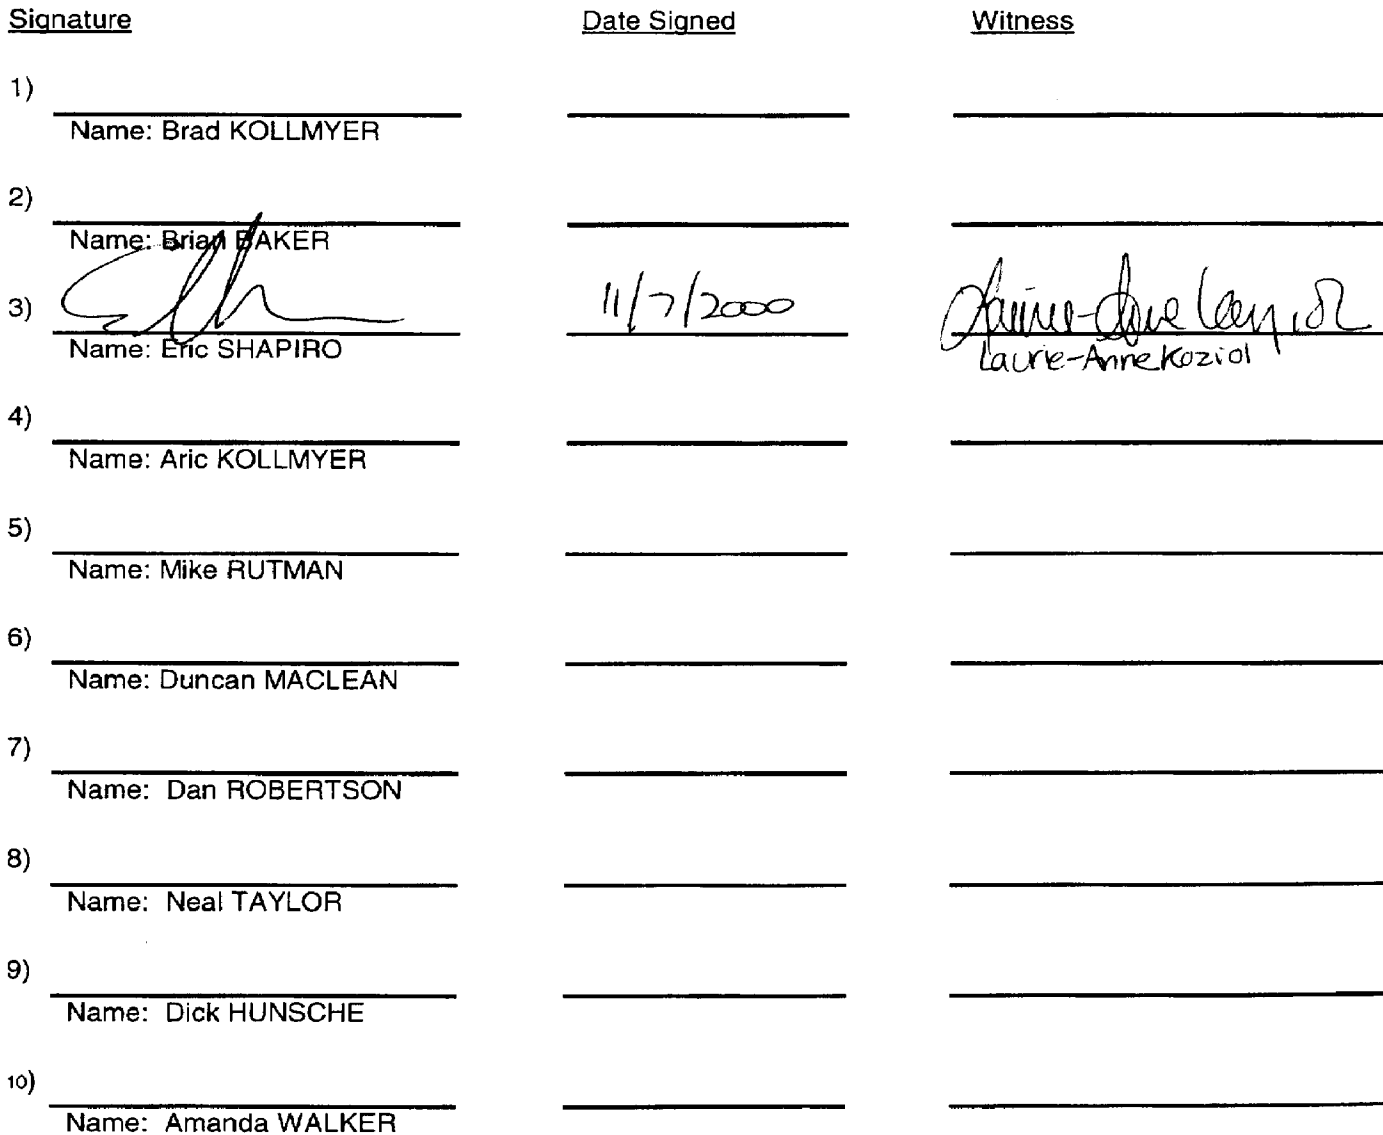 Signature Date Signed Witness
1)
Name: Brad KOLLMYER
2)
Name: Brian BAKER
3) 11/7/2000
Name: Eric SHAPIRO Laurie-Anne Koziol
4)
Name: Aric KOLLMYER
5)
Name: Mike RUTMAN
6)
Name: Duncan MACLEAN
7)
Name: Dan ROBERTSON
8)
Name: Neal TAYLOR
9)
Name: Dick HUNSCHE
10)
Name: Amanda WALKER